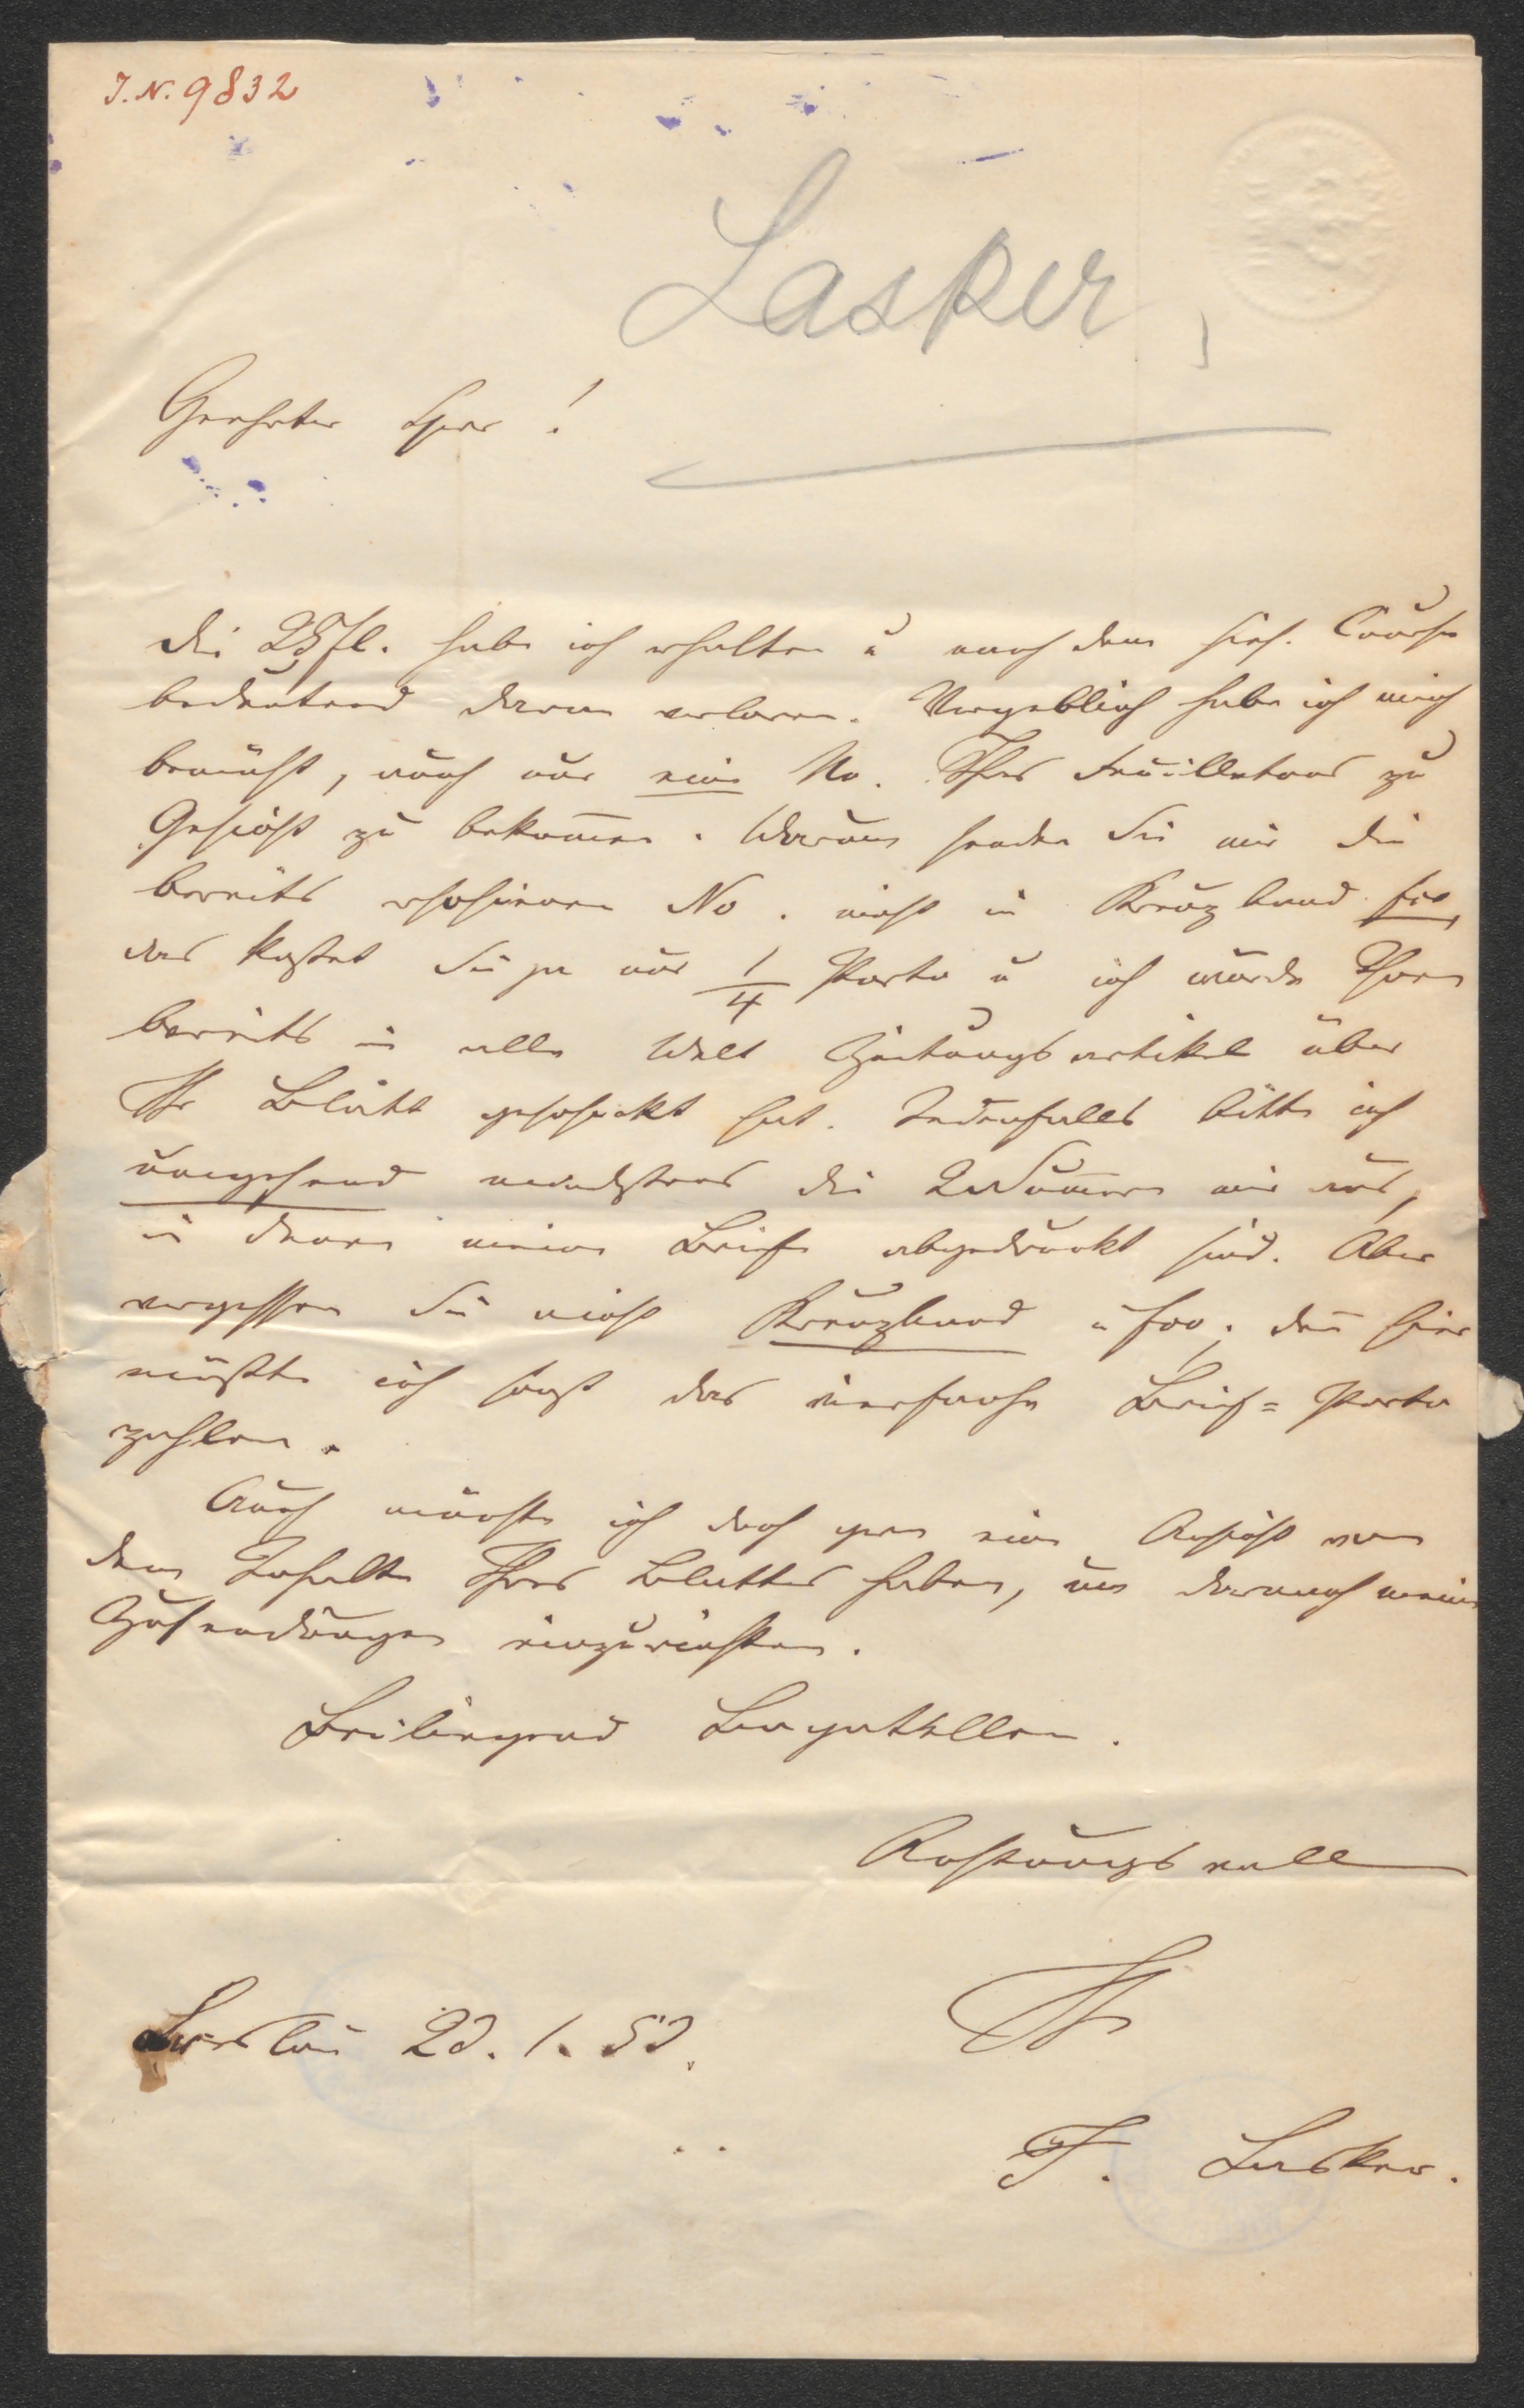 J. N. 9832
Lasker
Geehrter Herr!
Die 25 fl. habe ich erhalten u nach dem hies. Course
bedeutend daran verloren. Vergeblich habe ich mich
bemüht, auch nur eine No. Ihres Feuilletons zu
Gesicht zu bekom̅en. Warum senden Sie mir die
bereits erschienen No. nicht in Kreuzband fro,
das kostet Sie ja nur 1/4 Porto u ich würde Ihnen
bereits in alle Welt Zeitungsartikel über
Ihr Blatt geschickt hat. Jedenfalls bitte ich
umgehend mindstens die 2 Num̅ern mir aus,
in denen meine Briefe abgedruckt sind. Aber
vergessen Sie nicht Kreuzband u fro; den̅ hier
müßte ich sonst das vierfache Brief=Porto
zahlen.
Auch möchte ich doch gern eine Ansicht von
dem Inhalte Ihres Blattes haben, um darnach meine
Zusendungen einzurichten.
Beiliegend Bagatellen.
Achtungsvoll
Ihr
Breslau 23. 1. 53.
F. Lasker.